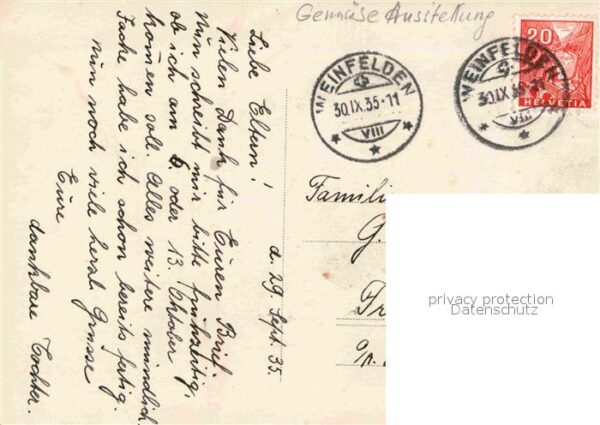 Gemüse Ausstellung
20
HELVETIA
WEINFELDEN
30.IX.35-11
VIII
WEINFELDEN
30.IX.35-11
VIII
a. 29. Sept. 35.
Liebe Eltern!
Vielen Dank für Euren Brief.
Nun schreibt mir bitte frühzeitig,
ob ich am 6 oder 13. Oktober
kommen soll. Alles weitere mündlich.
Fache habe ich schon bereits fertig.
Nun noch viele herzl. Grüsse
Eure
dankbare Tochter.
Famili
G.
Fr
privacy protection
Datenschutz